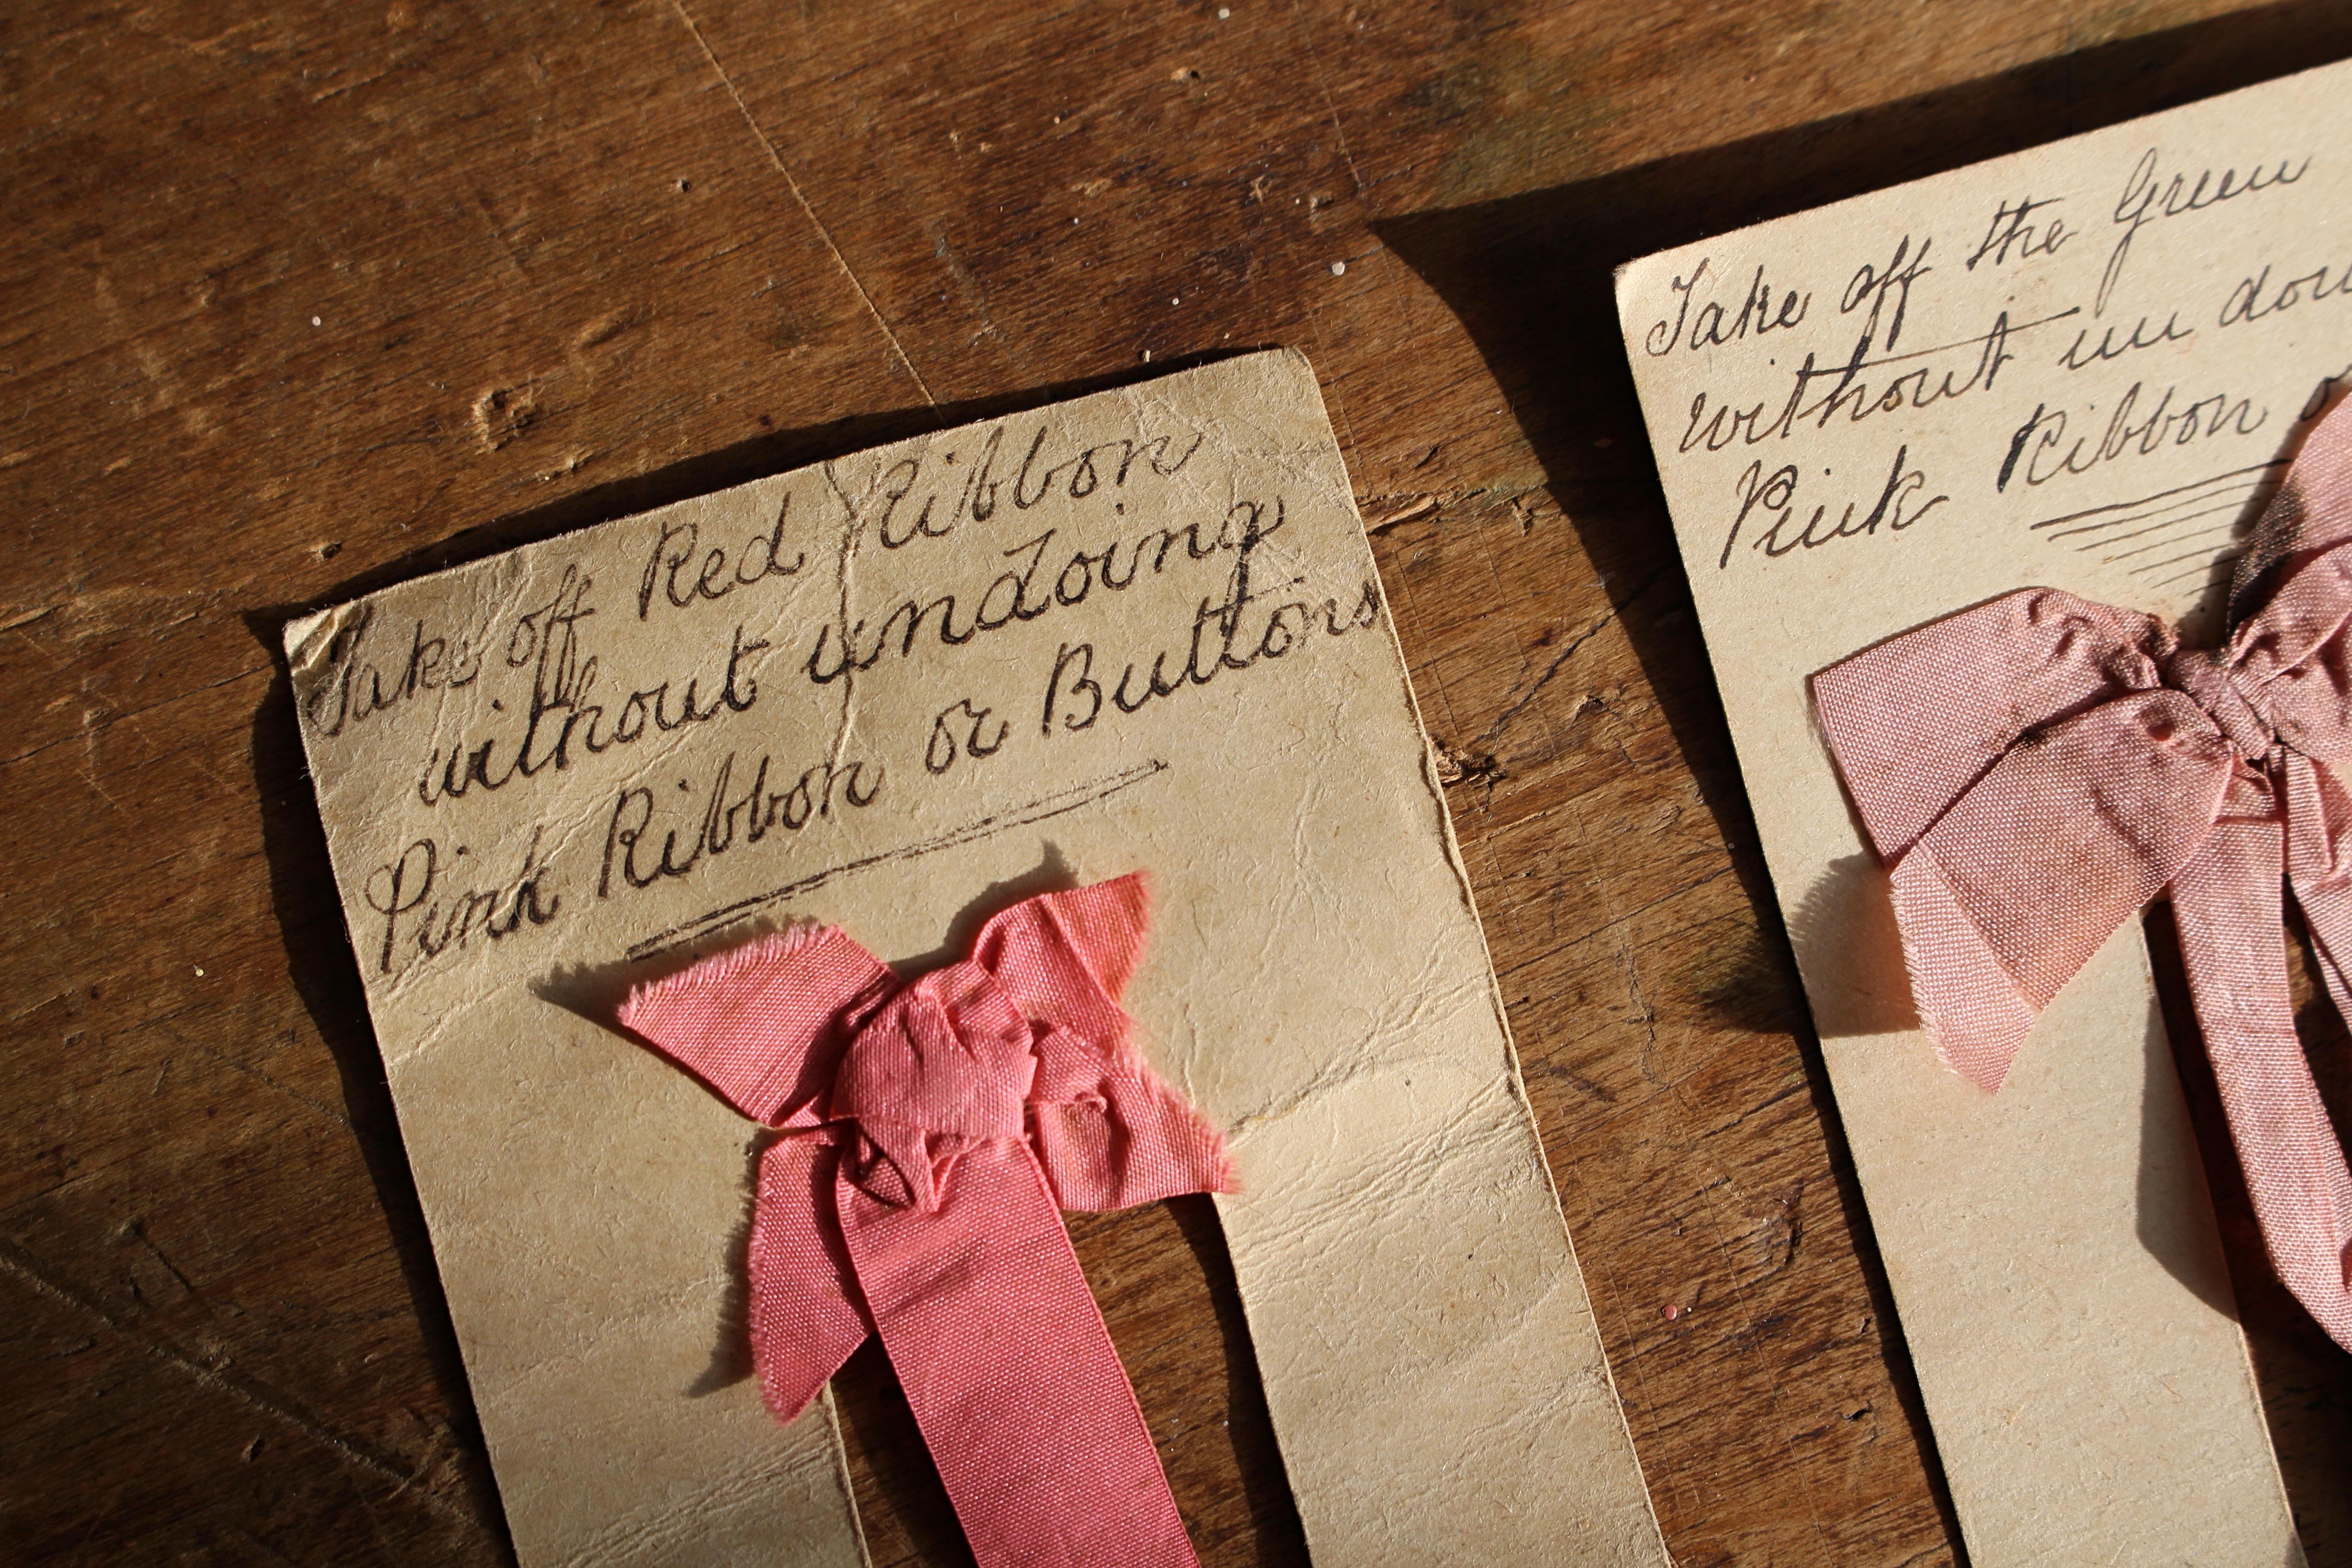 Take off Red Ribbon
without undoing
Pink Ribbon or Buttons
Take off the Green
without un doin
Pink Ribbon o